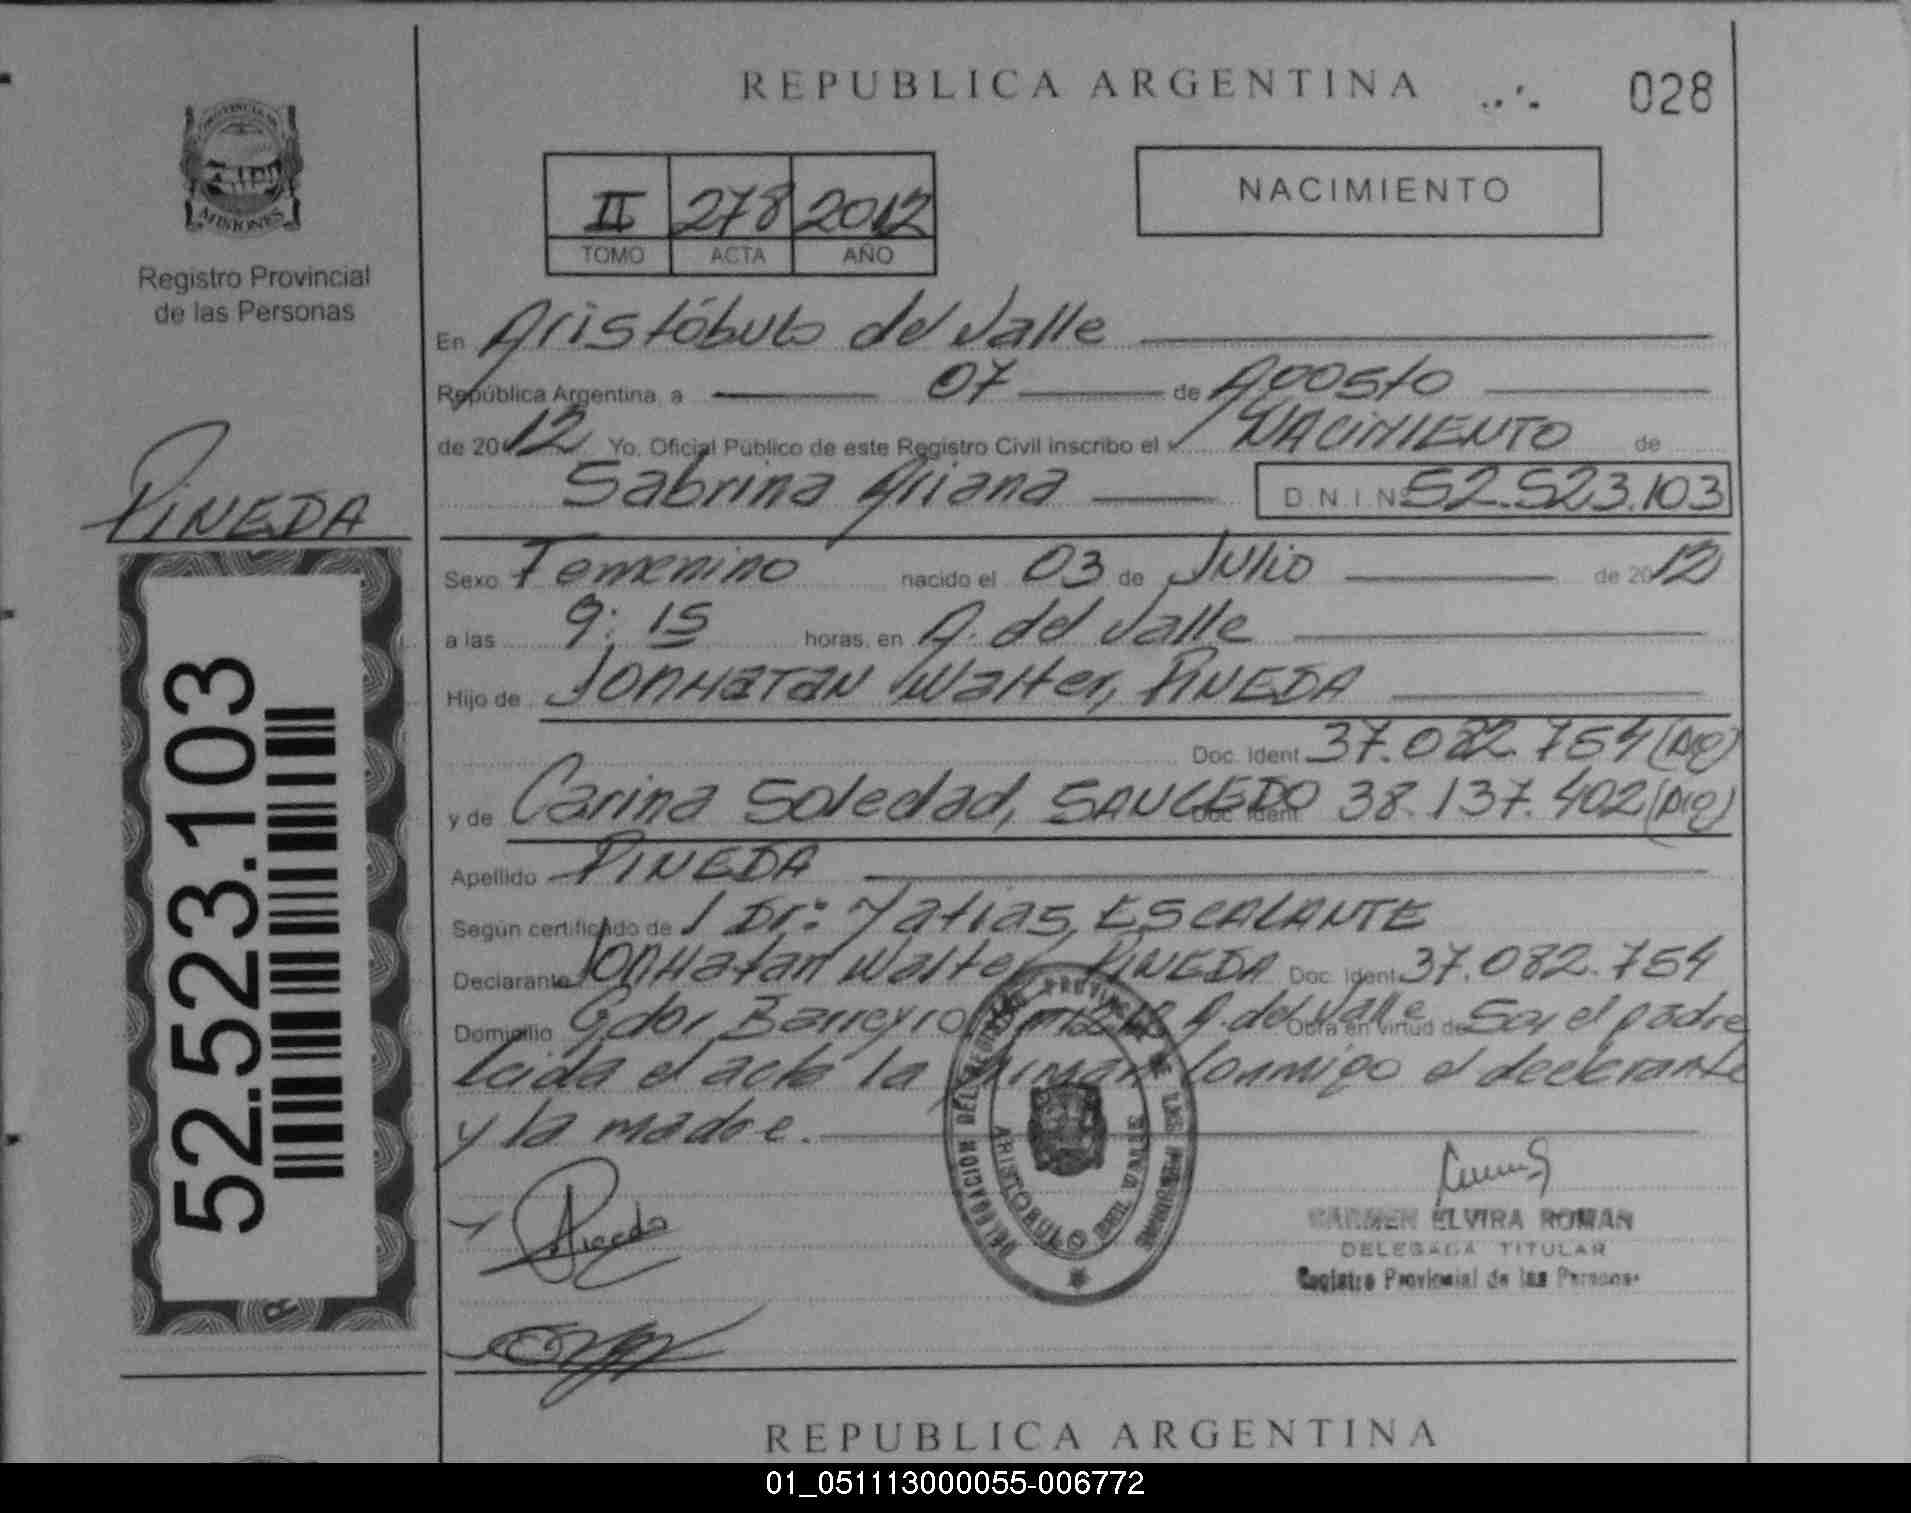 REPUBLICA ARGENTINA
028
PROVINCIA DE
MISIONES
Registro Provincial
de las Personas
II 278 2012
TOMO ACTA AÑO
NACIMIENTO
En Aristóbulo del Valle
República Argentina, a 07 de Agosto
de 2012 Yo, Oficial Público de este Registro Civil inscribo el NACIMIENTO de
Sabrina Ariana D.N.I. Nº 52.523.103
PINEDA
Sexo Femenino nacido el 03 de Julio de 2012
a las 9:15 horas, en A. del Valle
Hijo de JONHATAN Walter, PINEDA
Doc. Ident. 37.082.754 (Arg)
y de Carina Soledad, SAUCEDO Doc. Ident. 38.137.402 (Arg)
Apellido PINEDA
Según certificado de Dr: Matias, ESCALANTE
Declarante JONHatan Walter PINEDA Doc. Ident. 37.082.754
Domicilio Gdor, Barreyro A. del Valle Obra en virtud de Ser el padre
Leida el acta la firman conmigo el declarante
y la madre.
52.523.103
DELEGACION DEL REGISTRO PROVINCIAL DE LAS PERSONAS
ARISTOBULO DEL VALLE
Pineda
CARMEN ELVIRA ROMAN
DELEGADA TITULAR
Registro Provincial de las Personas
REPUBLICA ARGENTINA
01_051113000055-006772